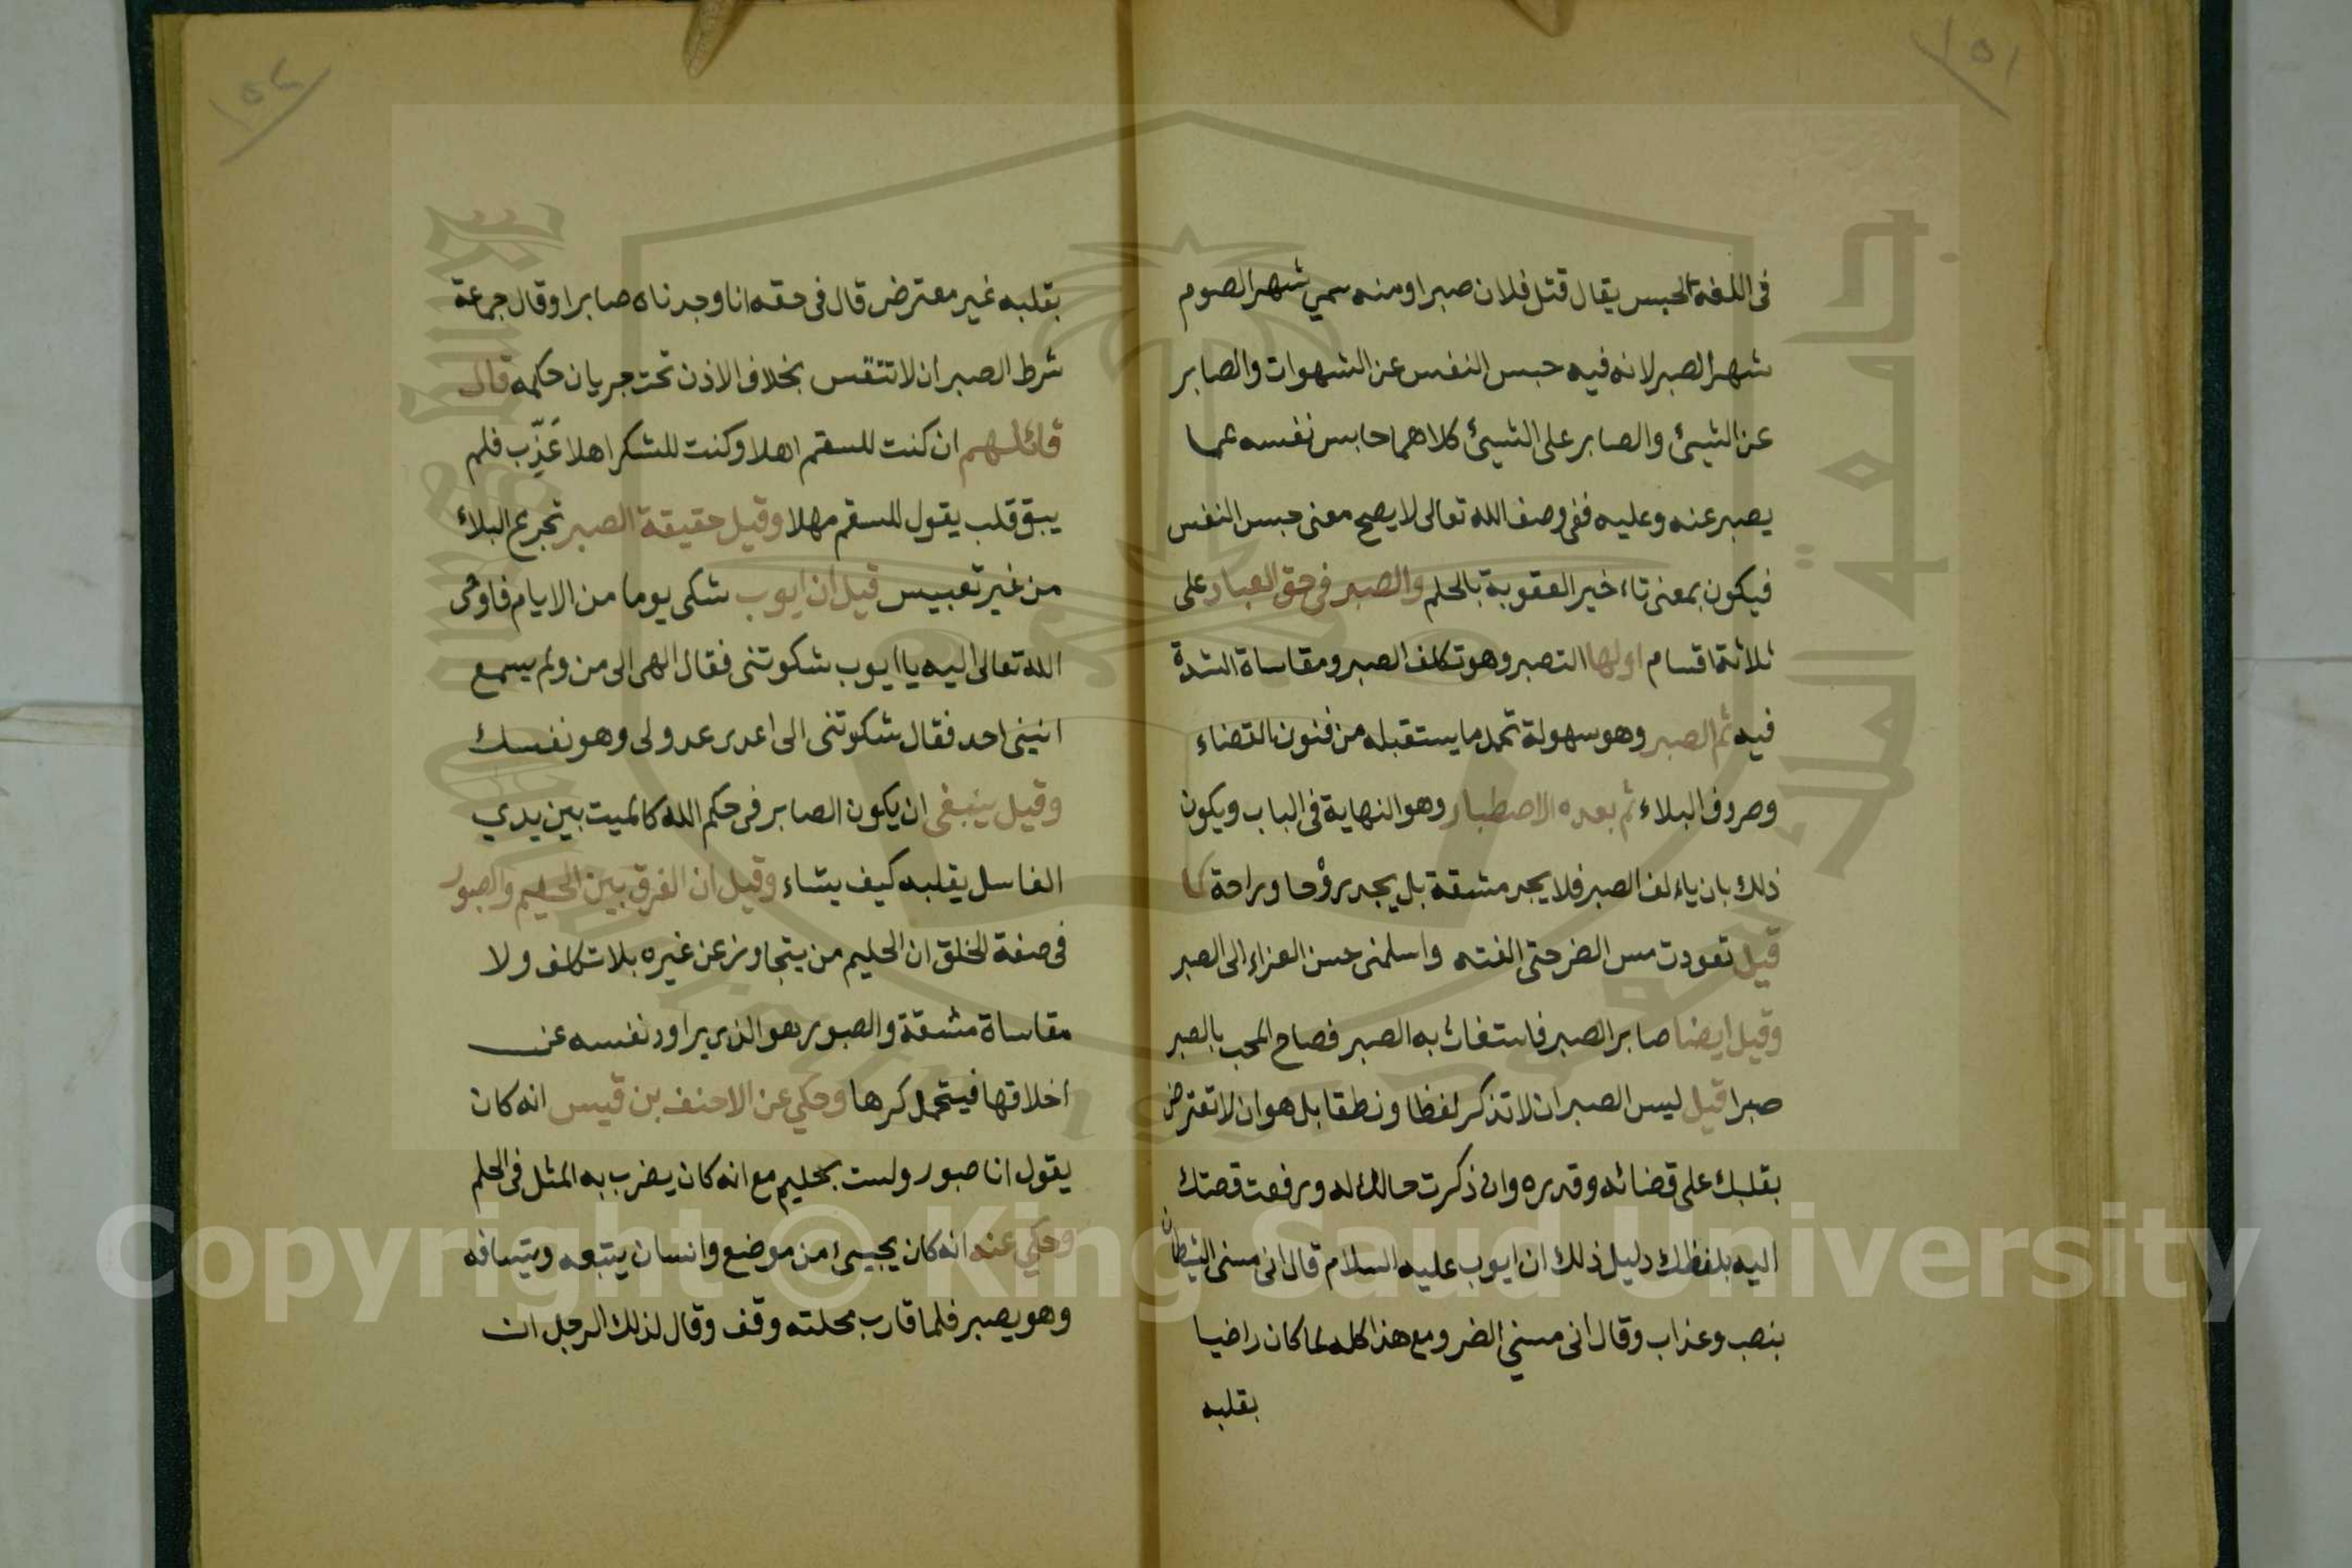 ١٥١
فى اللغة الحبس يقال قتل فلان صبرا ومنه سمي شهر الصوم
شهر الصبر لانه فيه حبس النفس عن الشهوات والصابر
عن الشيئ والصابر على الشيئ كلاهما حابس نفسه عما
يصبر عنه وعليه ففى وصف الله تعالى لا يصح معنى حبس النفس
فيكون بمعنى تاءخير العقوبة بالحلم والصبر فى حق العباد على
ثلاثة اقسام اولها التصبر وهو تكلف الصبر ومقاساة الشدة
فيه ثم الصبر وهو سهولة تحمل ما يستقبله من فنون القضاء
وصروف البلاء ثم بعده الاصطبار وهو النهاية فى الباب ويكون
ذلك بان ياءلف الصبر فلا يجد مشقة بل يجد روْحا وراحة كما
قيل تعودت مس الضر حتى الفته واسلمنى حسن العزاء الى الصبر
وقيل ايضا صابر الصبر فاستغاث به الصبر فصاح المحب بالصبر
صبرا قيل ليس الصبر ان لا تذكر لفظا ونطقا بل هو ان لا تعترض
بقلبك على قضائه وقدره وان ذكرت حالك له ورفعت قصتك
اليه بلفظك دليل ذلك ان ايوب عليه السلام قال انى مسنى الشيطان
بنصب وعذاب وقال انى مسني الضر ومع هذا كله لما كان راضيا
بقلبه
١٥٢
بقلبه غير معترض قال فى حقه انا وجدناه صابرا وقال جماعة
شرط الصبر ان لا تتنفس بخلاف الاذن تحت جريان حكمه قال
قائلهم ان كنت للسقم اهلا وكنت للشكر اهلا عَذِّب فلم
يبق قلب يقول للسقم مهلا وقيل حقيقة الصبر تجرع البلاء
من غير تعبيس قيل ان ايوب شكى يوما من الايام فاوحى
الله تعالى اليه يا ايوب شكوتنى فقال الهى الى من ولم يسمع
انينى احد فقال شكوتنى الى اعدى عدو لى وهو نفسك
وقيل ينبغى ان يكون الصابر فى حكم الله كالميت بين يدي
الغاسل يقلبه كيف يشاء وقيل ان الفرق بين الحليم والصبور
فى صفة الخلق ان الحليم من يتجاوز عن غيره بلا تكلف ولا
مقاساة مشقة والصبور هو الذى يراود نفسه عن
اخلاقها فيتحمل كرها وحكي عن الاحنف بن قيس انه كان
يقول انا صبور ولست بحليم مع انه كان يضرب به المثل فى الحلم
وحكي عنه انه كان يجيئ من موضع وانسان يتبعه ويتسافه
وهو يصبر فلما قارب محلته وقف وقال لذلك الرجل ان
Copyright © King Saud University